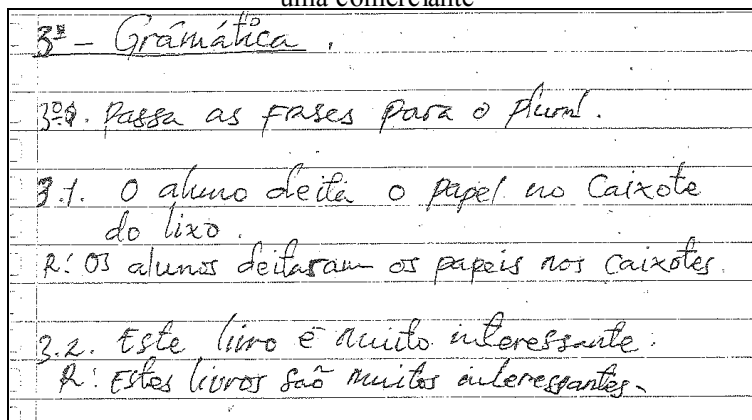 uma comerciante
3ª - Gramática.
3º. Passa as frases para o plural.
3.1. O aluno deita o papel no Caixote
do lixo.
R: Os alunos deitaram os papeis nos Caixotes.
3.2. Este livro é muito interessante.
R: Estes livros são muitos interessantes.